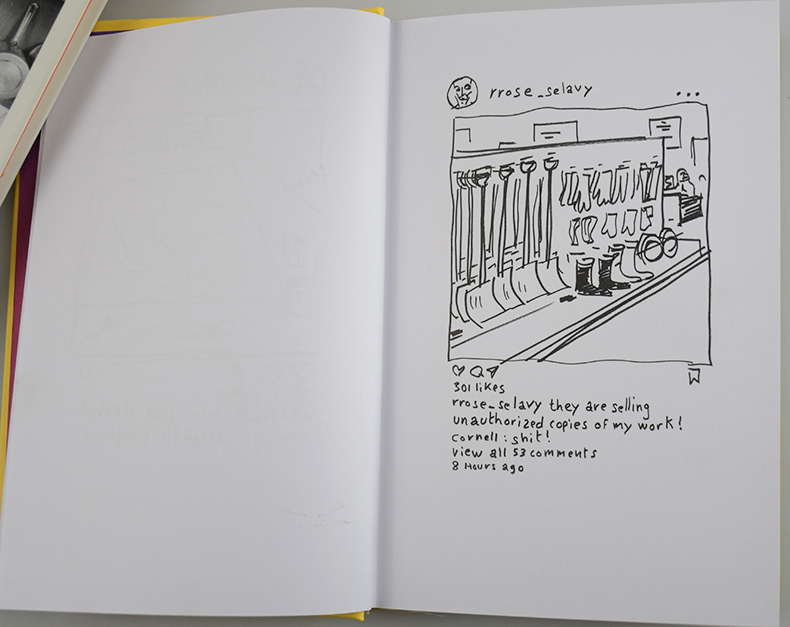 rrose_selavy
301 likes
rrose_selavy they are selling
unauthorized copies of my work!
cornell: shit!
view all 53 comments
8 Hours ago